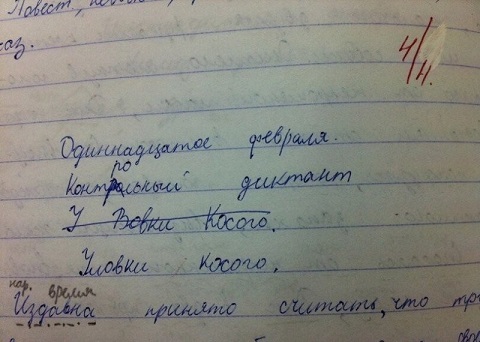 каз.
4/4.
Одиннадцатое февраля.
Контрольный диктант
У Вовки Косого.
Уловки косого.
нар. время
Издавна принято считать, что